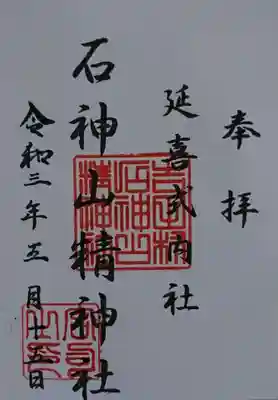 奉拝
延喜式内社
石神山精神社
令和三年五月十五日